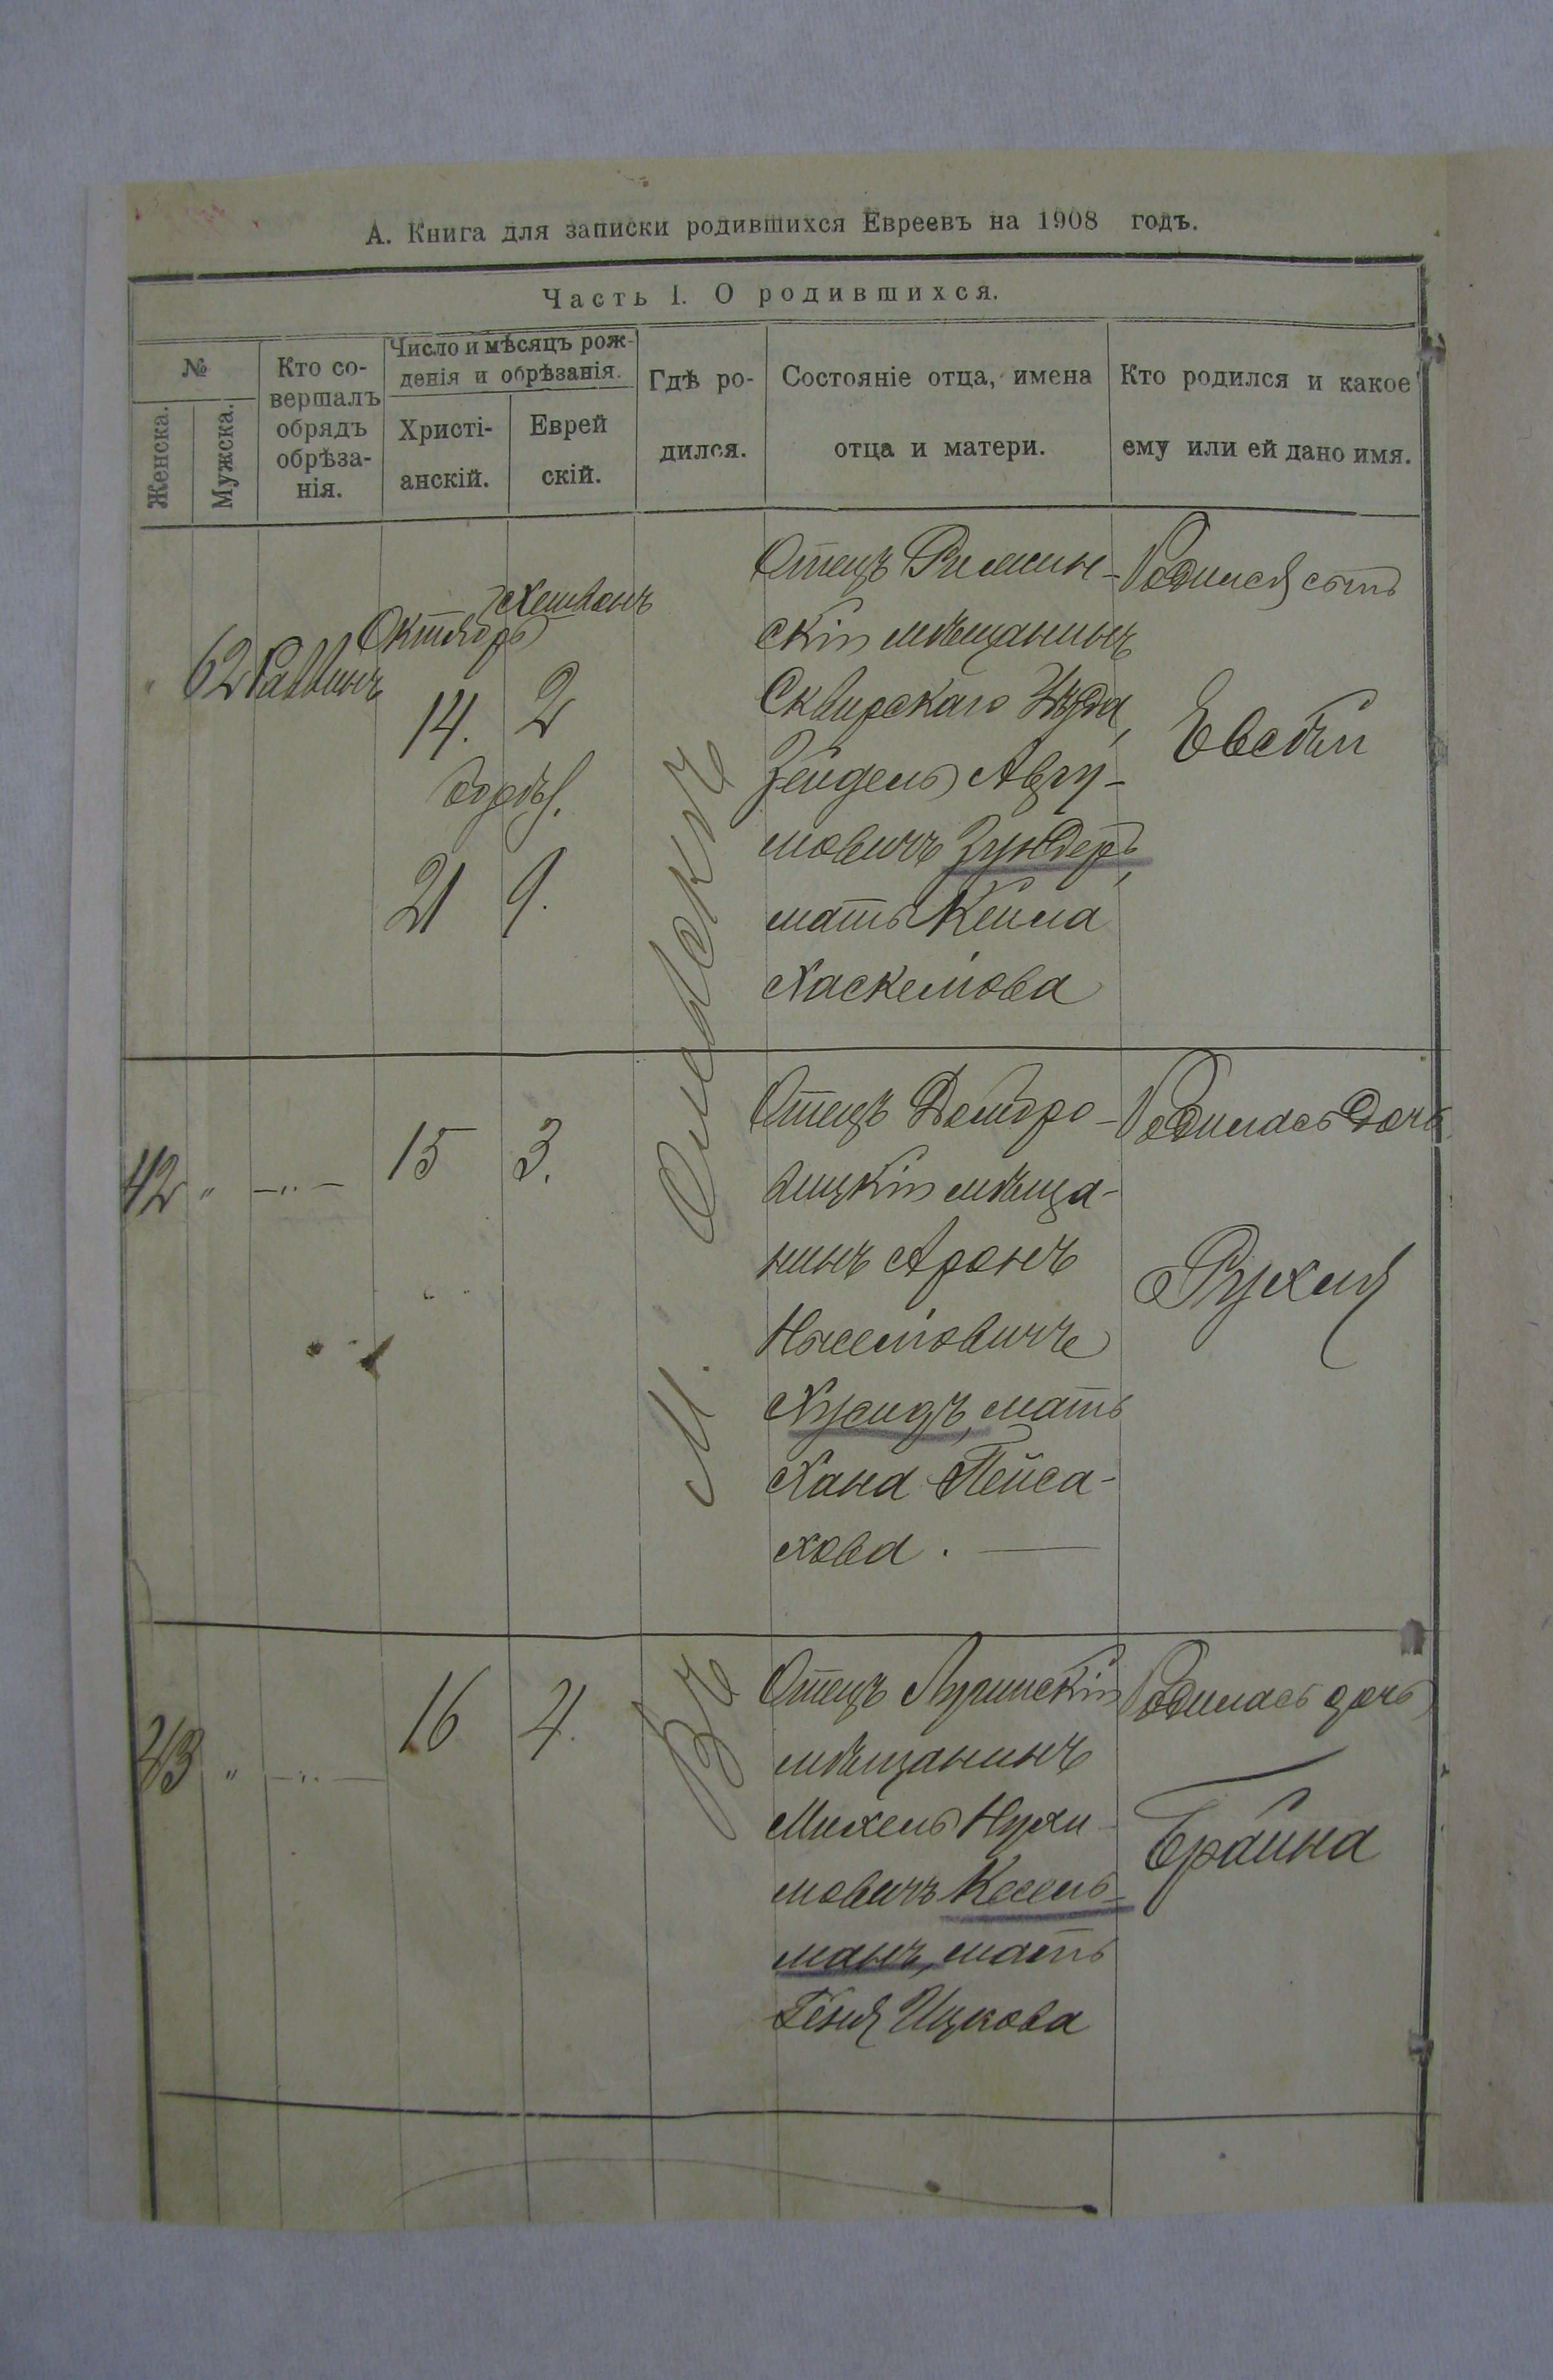 А. Книга для записки родившихся Евреевъ на 1908 годъ.
Часть I. О родившихся.
№
Женска.
Мужска.
Кто со-
вершалъ
обрядъ
обрѣза-
нія.
Число и мѣсяцъ рож-
денія и обрѣзанія.
Христі-
анскій.
Еврей
скій.
Гдѣ ро-
дился.
Состояніе отца, имена
отца и матери.
Кто родился и какое
ему или ей дано имя.
" 62 Раввинъ
Октябрь Хешванъ
14. 2
обрѣз.
21 9.
Въ М. Олевскѣ
Отецъ Ружин-
скій мѣщанинъ
Сквирскаго Уѣзда,
Зейдель Авру-
мовичъ Зундеръ,
мать Кейла
Хаскелíова
Родился сынъ
Евсѣй
42 " —"— 15 3.
Отецъ Домбро-
вицкій мѣща-
нинъ Аронъ
Ниселíовичъ
Хусидъ, мать
Хана Пейса-
хова. —
Родилась дочь
Рухля
43 " —"— 16 4.
Отецъ Лугинскій
мѣщанинъ
Михель Нухи-
мовичъ Кесель-
манъ, мать
Геня Ицкова
Родилась дочь
Брайна